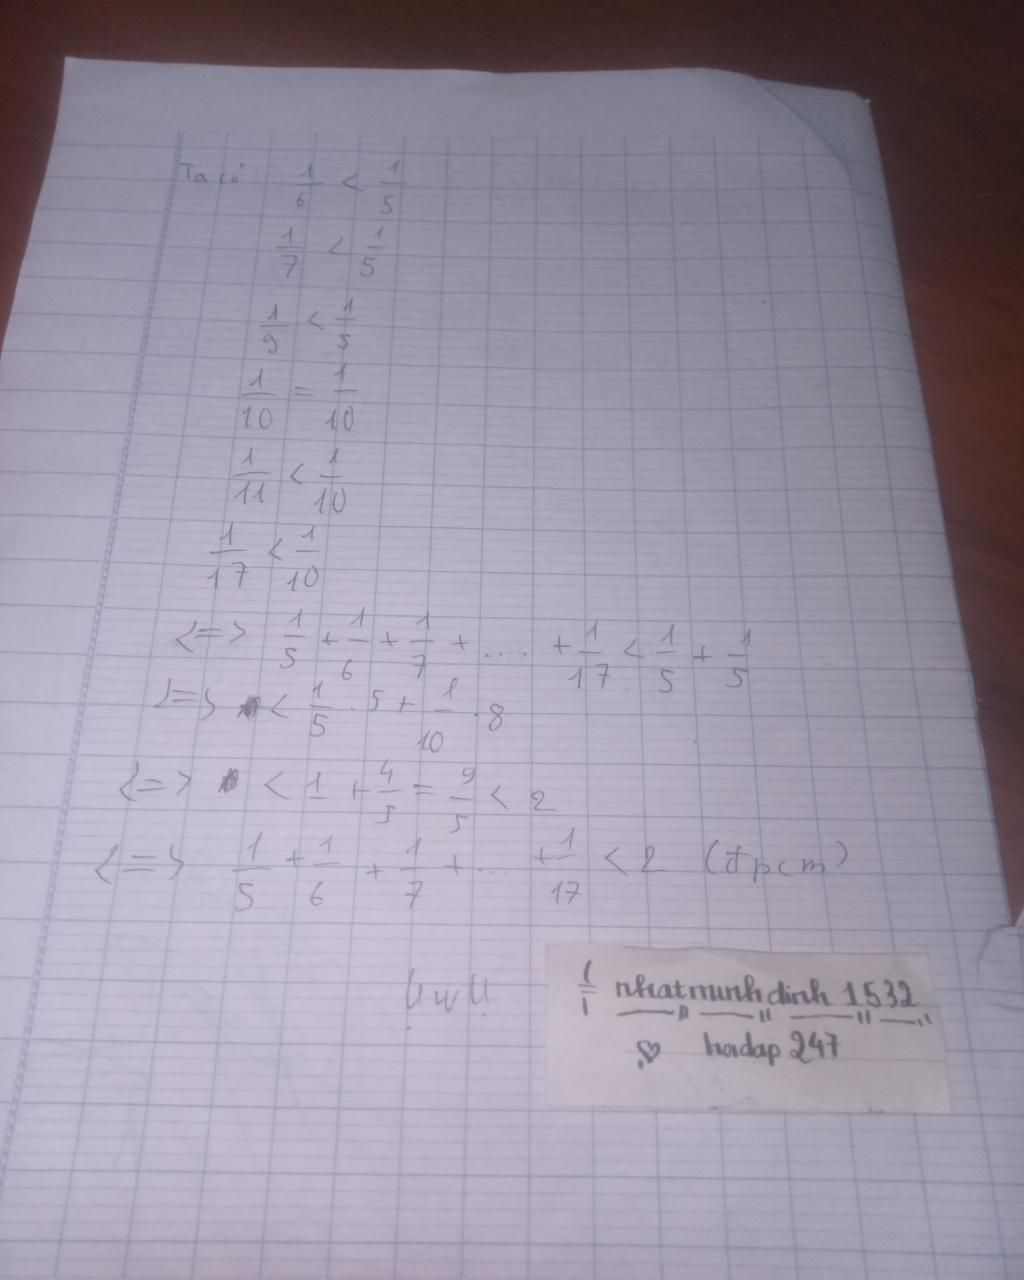 Ta có 1/6 < 1/5
1/7 < 1/5
1/9 < 1/5
1/10 = 1/10
1/11 < 1/10
1/17 < 1/10
<=> 1/5 + 1/6 + 1/7 + .... + 1/17 < 1/5 + 1/5
<=> < 1/5 . 5 + 1/10 . 8
<=> < 1 + 4/5 = 9/5 < 2
<=> 1/5 + 1/6 + 1/7 + ... + 1/17 < 2 (đpcm)
UwU
nhatminhdinh1532
hoidap247